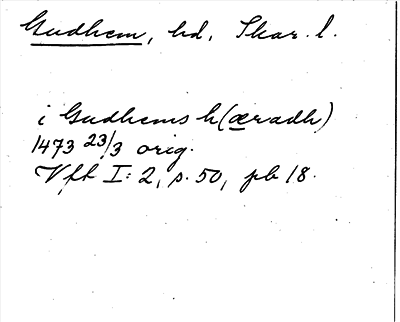 Gudhem, hd, Skar. l.
i Gudhems h(æradh)
1473 23/3 orig.
Vft I: 2, s. 50, pb 18.